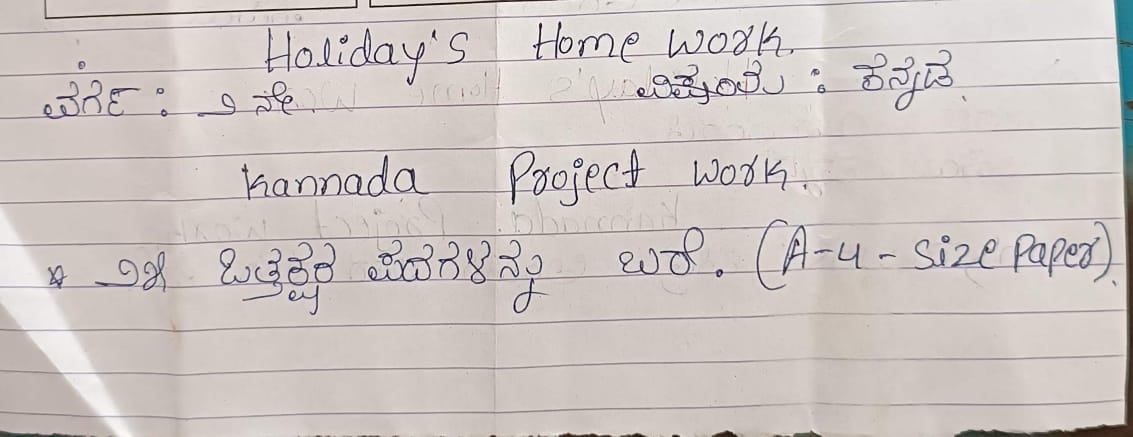 Holiday's Home Work.
ವರ್ಗ : ೨ ನೇ. ವಿಷಯ : ಕನ್ನಡ.
Kannada Project Work.
* ಒತ್ತಕ್ಷರ ಪದಗಳನ್ನು ಬರೆ. (A-4-Size Paper).